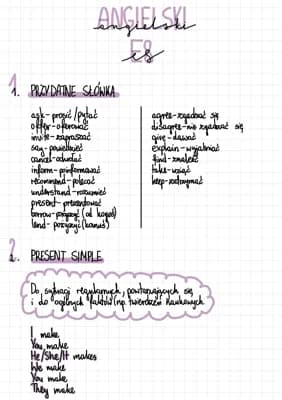 ANGIELSKI
angielski
E8
1. PRZYDATNE SŁÓWKA
ask - prosić / pytać
offer - oferować
invite - zapraszać
say - powiedzieć
cancel - odwołać
inform - poinformować
recommend - polecać
understand - rozumieć
present - prezentować
borrow - pożyczyć (od kogoś)
lend - pożyczyć (komuś)
agree - zgadzać się
disagree - nie zgadzać się
give - dawać
explain - wyjaśniać
find - znaleźć
take - wziąć
keep - zatrzymać
2. PRESENT SIMPLE
Do sytuacji regularnych, powtarzających się
i do ogólnych faktów (np. twierdzeń naukowych)
I make
You make
He/She/It makes
We make
You make
They make